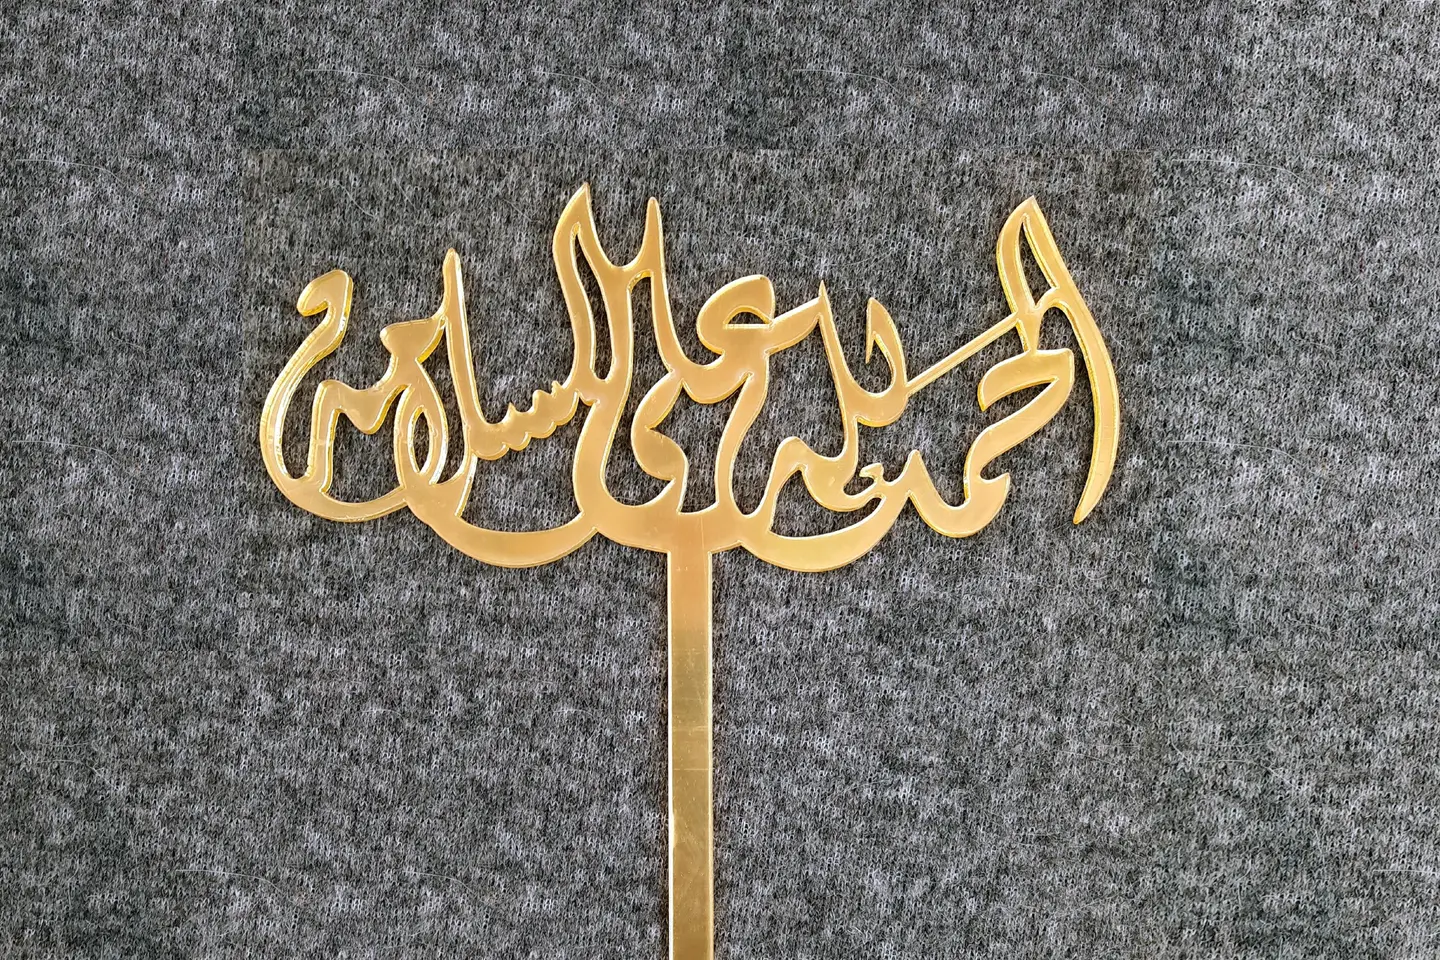 الحمد لله على السلامة